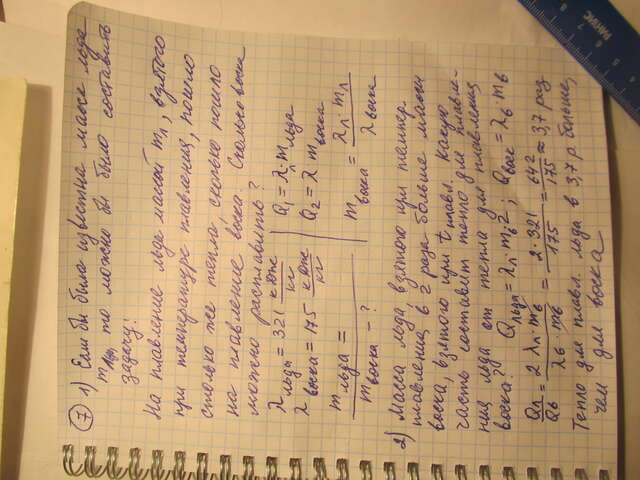 ⑦ 1) Если бы была известна масса льда
mльда, то можно бы было составить
задачу:
На плавление льда массой mл, взятого
при температуре плавления, пошло
столько же тепла, сколько пошло
на плавление воска. Сколько воска
можно расплавить?
λльда = 321 кДж/кг | Q₁ = λл · mльда
λвоска = 175 кДж/кг | Q₂ = λ mвоска
mльда =
mвоска - ? | mвоска = λл mл / λвоска
2) Масса льда, взятого при темпер.
плавления в 2 раза больше массы
воска, взятого при t плавл. Какую
часть составит тепло для плавле-
ния льда от тепла для плавления
воска? Qльда = λл mв · 2; Qвос = λв mв
Qл/Qв = 2 λл mв / λв mв = 2 · 321 / 175 = 642 / 175 ≈ 3,7 раз
Тепло для плавл. льда в 3,7 р. больше,
чем для воска